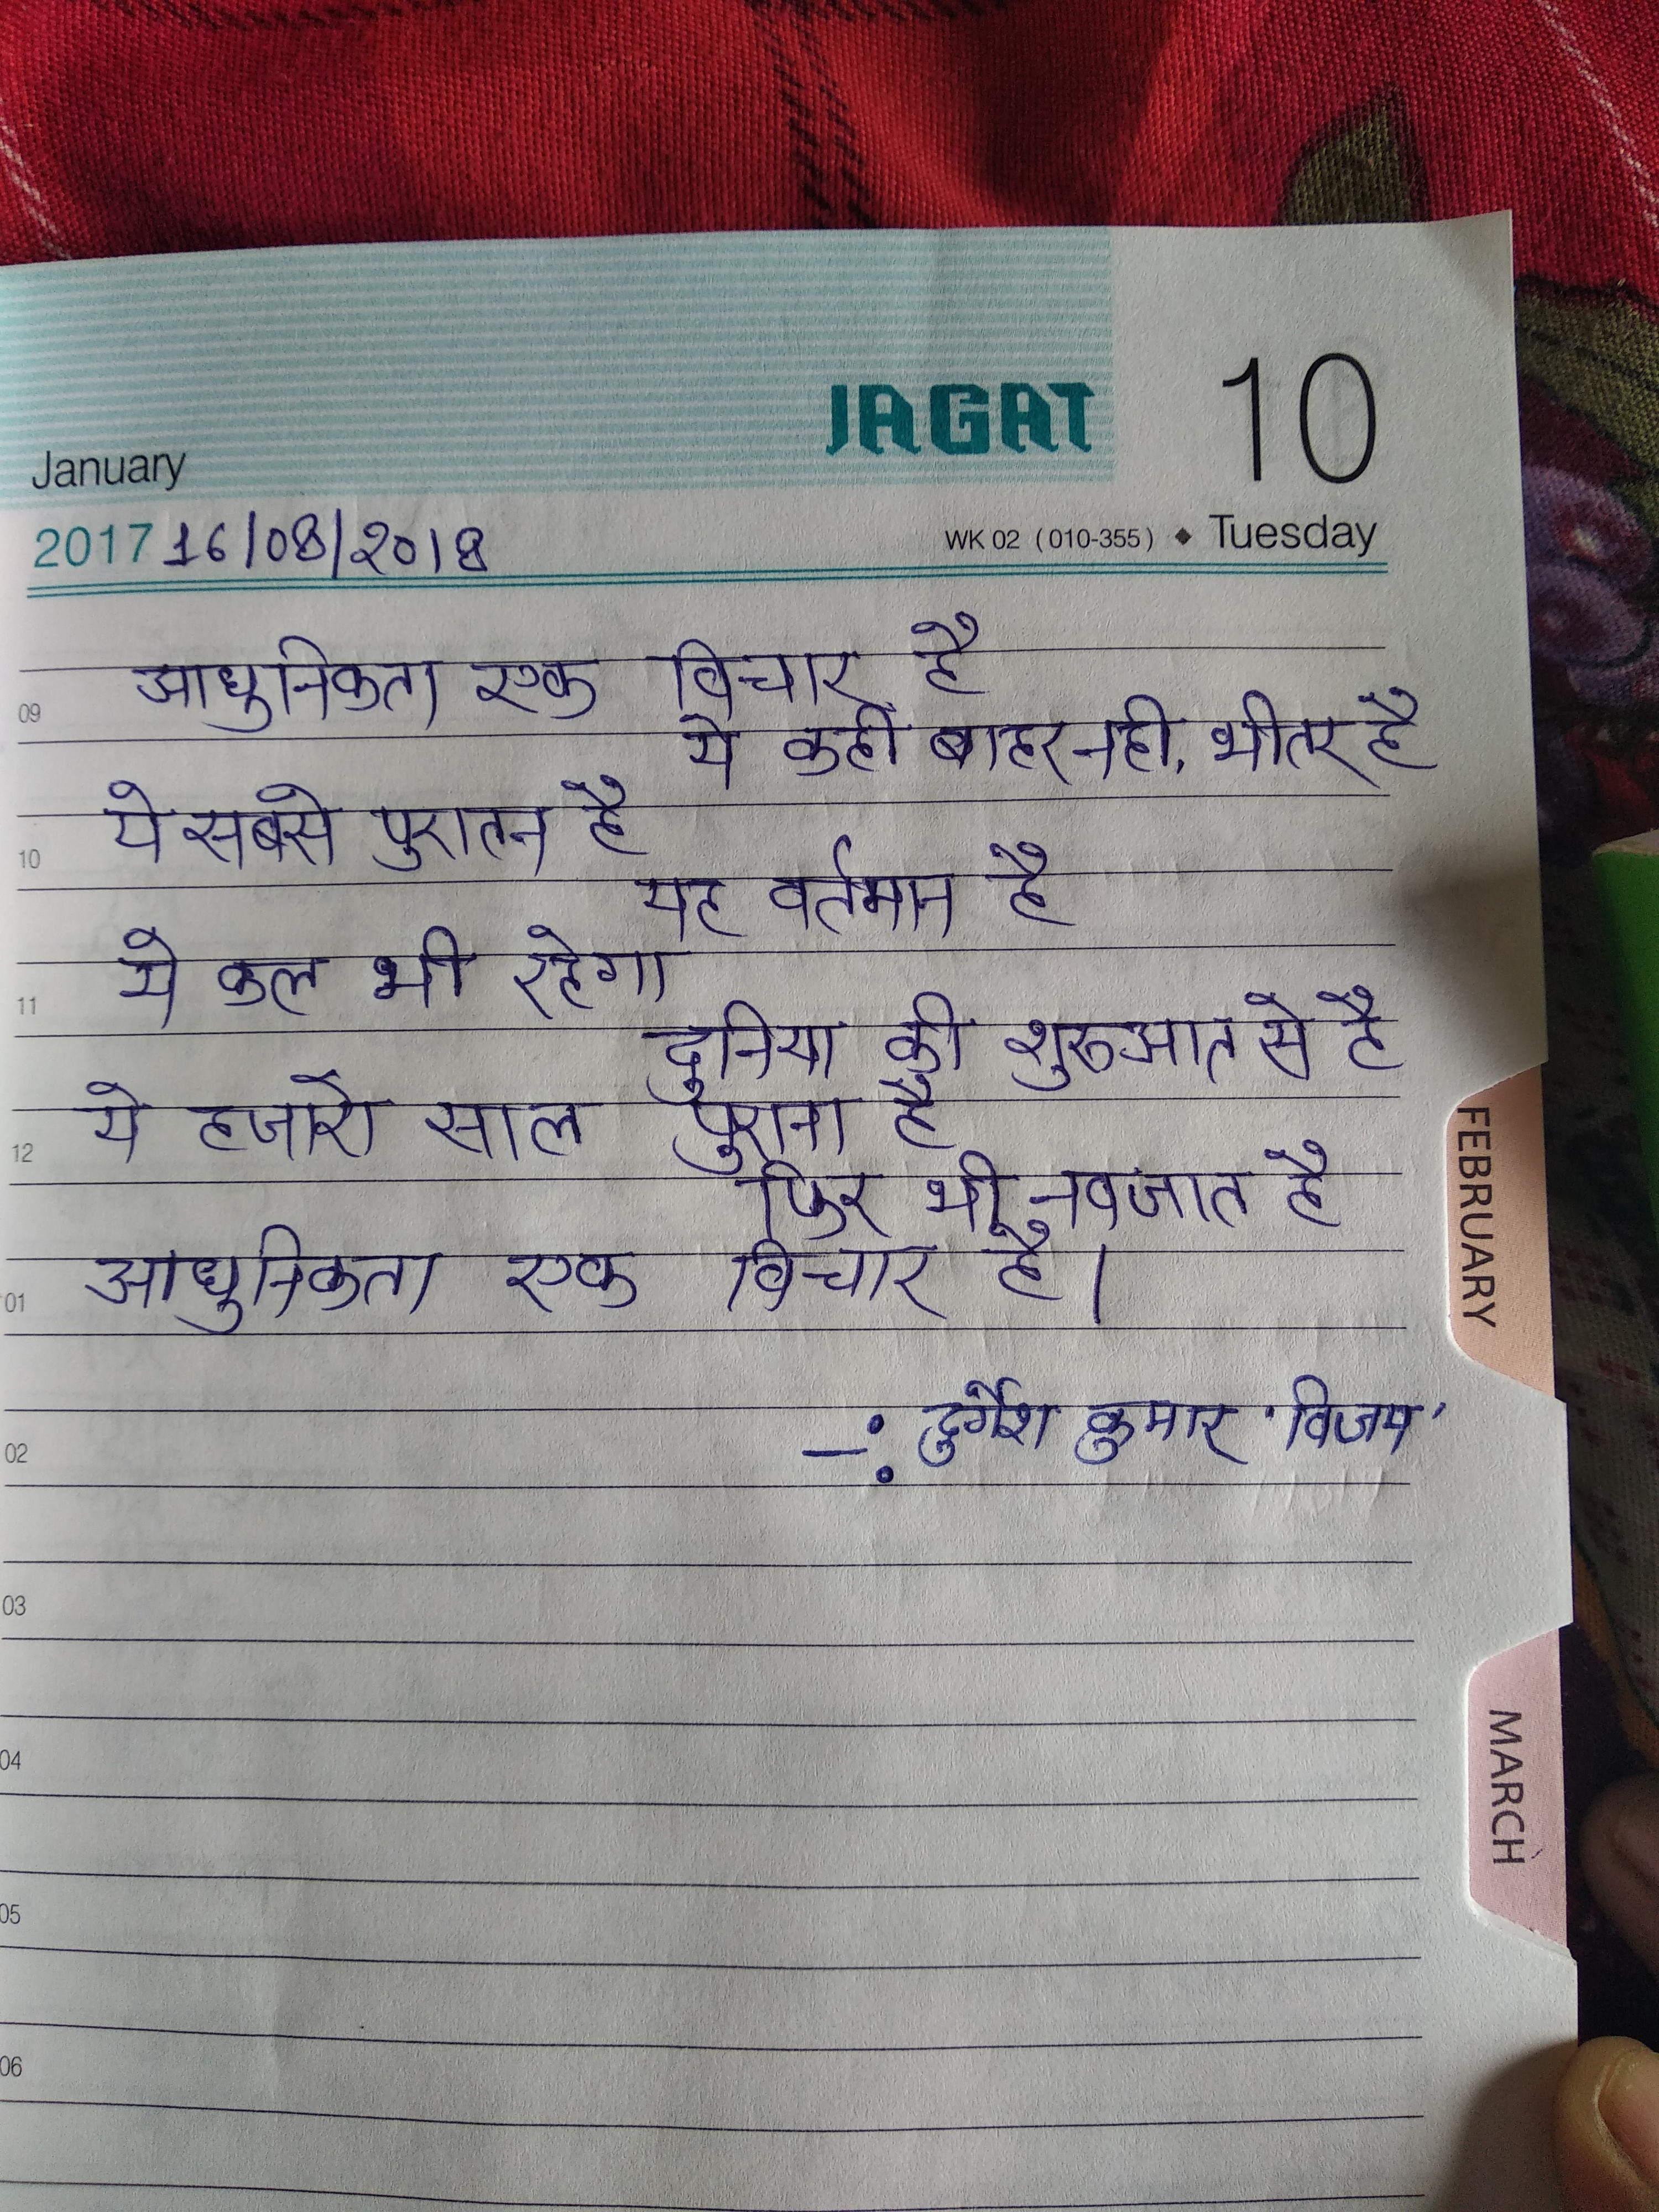 JAGAT
10
January
2017 16/08/2018
WK 02 (010-355) ◆ Tuesday
आधुनिकता एक विचार है
ये कही बाहर नही, भीतर है
ये सबसे पुरातन है
यह वर्तमान है
ये कल भी रहेगा
दुनिया की शुरुआत से है
ये हजारों साल पुराना है
फिर भी नवजात है
आधुनिकता एक विचार है।
—: दुर्गेश कुमार 'विजय'
09
10
11
12
01
02
03
04
05
06
FEBRUARY
MARCH